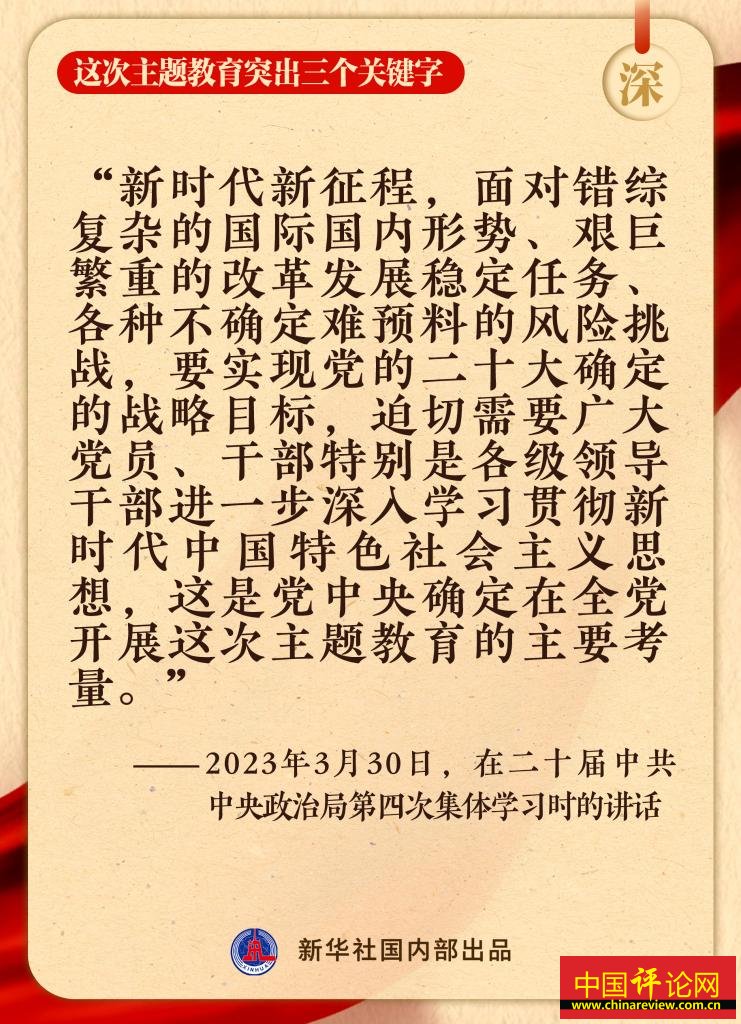 这次主题教育突出三个关键字
深
“新时代新征程，面对错综
复杂的国际国内形势、艰巨
繁重的改革发展稳定任务、
各种不确定难预料的风险挑
战，要实现党的二十大确定
的战略目标，迫切需要广大
党员、干部特别是各级领导
干部进一步深入学习贯彻新
时代中国特色社会主义思
想，这是党中央确定在全党
开展这次主题教育的主要考
量。”
——2023年3月30日，在二十届中共
中央政治局第四次集体学习时的讲话
XINHUA
新华社国内部出品
中国评论网
www.chinareview.com.cn